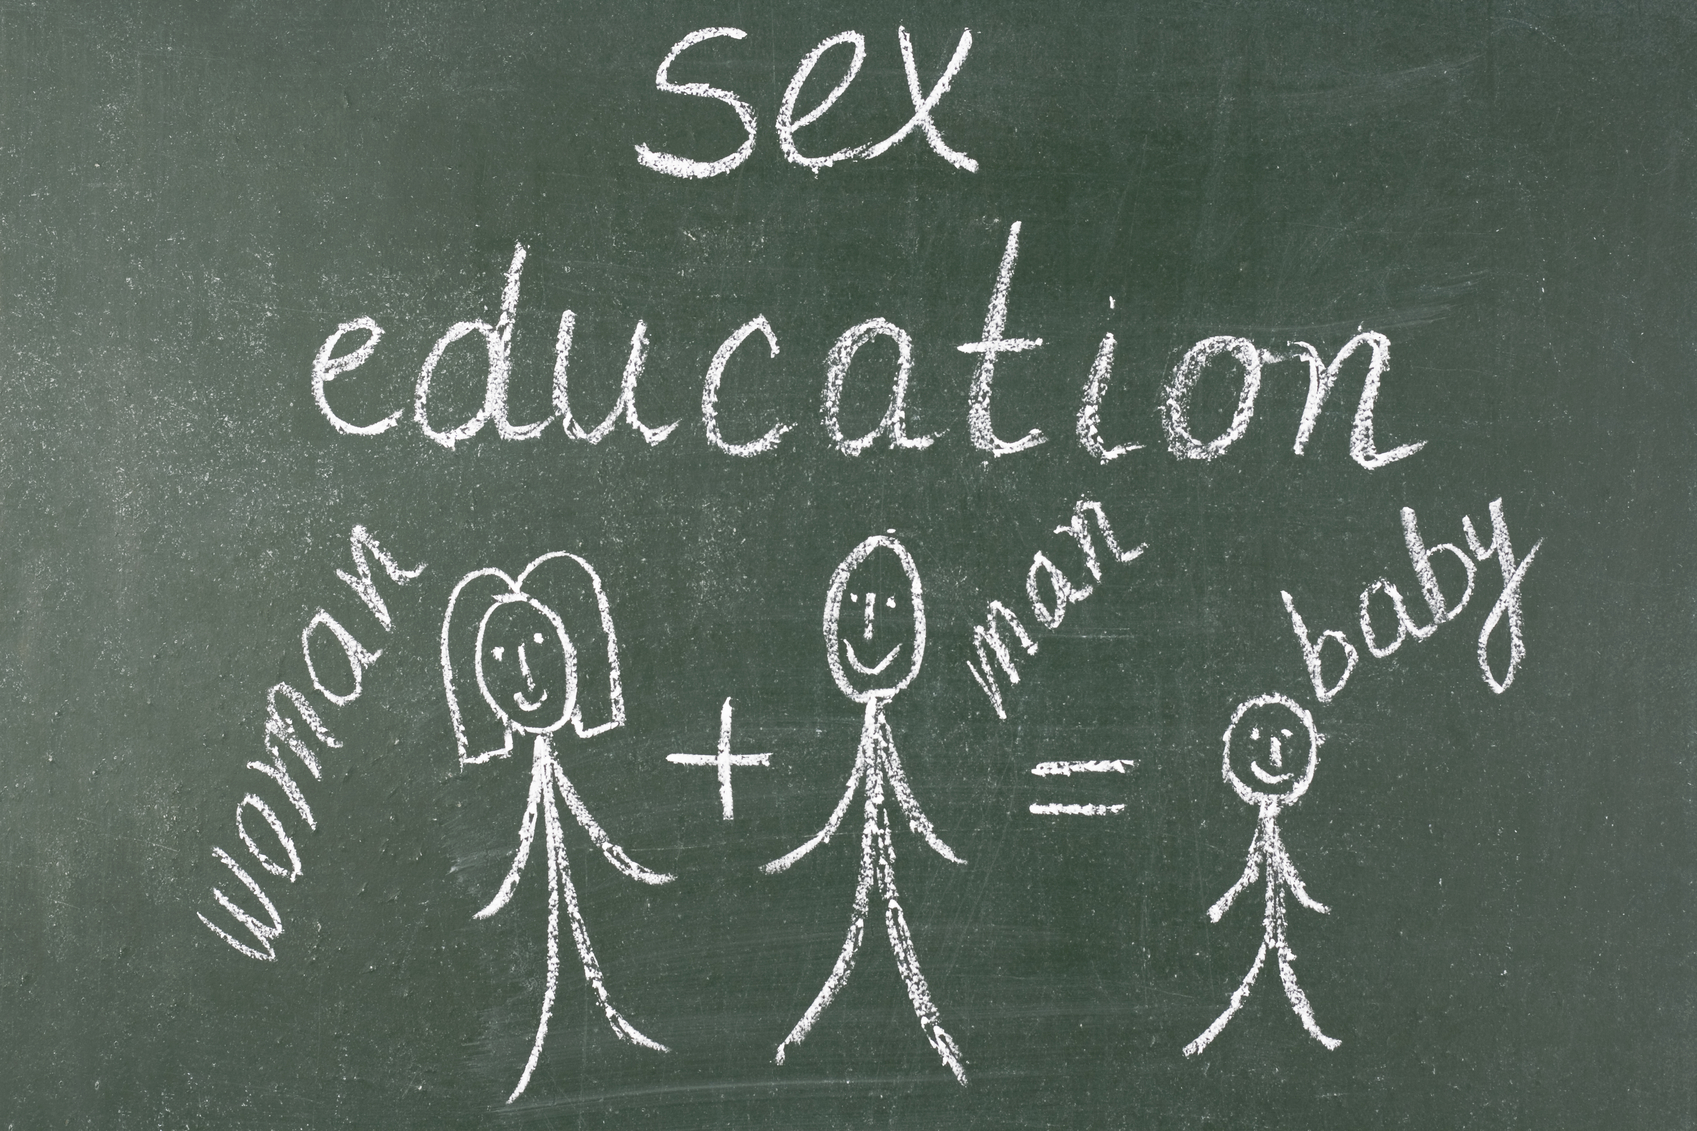 sex
education
woman
+
man
=
baby